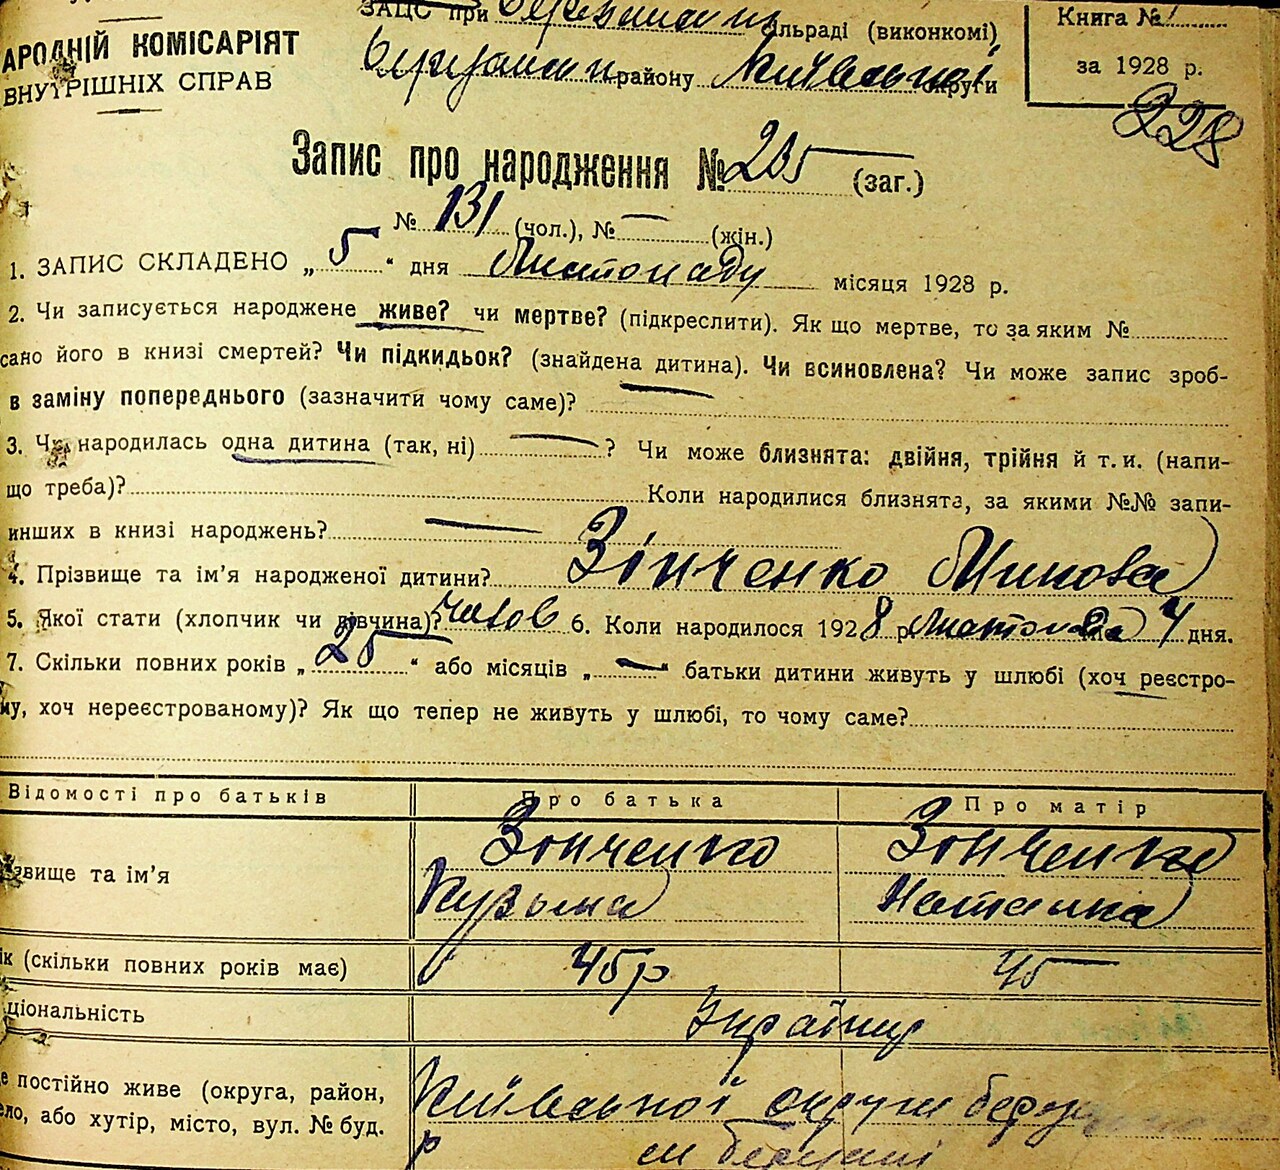 ЗАЦС при сільраді (виконкомі)
району Київської округи
Книга №
за 1928 р.
228
АРОДНІЙ КОМІСАРІЯТ
ВНУТРІШНІХ СПРАВ
Запис про народження № 235 (заг.)
№ 131 (чол.), № — (жін.)
1. ЗАПИС СКЛАДЕНО „ 5 “ дня Листопаду місяця 1928 р.
2. Чи записується народжене живе? чи мертве? (підкреслити). Як що мертве, то за яким №
сано його в книзі смертей? Чи підкидьок? (знайдена дитина). Чи всиновлена? Чи може запис зроб-
в заміну попереднього (зазначити чому саме)? —
3. Чи народилась одна дитина (так, ні) — ? Чи може близнята: двійня, трійня й т. и. (напи-
що треба)? Коли народилися близнята, за якими №№ запи-
инших в книзі народжень? —
4. Прізвище та ім’я народженої дитини? Зінченко Микола
5. Якої стати (хлопчик чи дівчина)? чолов 6. Коли народилося 1928 р. Листопада 4 дня.
7. Скільки повних років „ 25 “ або місяців „ — “ батьки дитини живуть у шлюбі (хоч реєстро-
му, хоч нереєстрованому)? Як що тепер не живуть у шлюбі, то чому саме?
Відомості про батьків Про батька Про матір
звище та ім’я Зінченко Кузьма Зінченко Наталка
ік (скільки повних років має) 45 р 45
ціональність Українці
е постійно живе (округа, район, Київської округи
ело, або хутір, місто, вул. № буд.